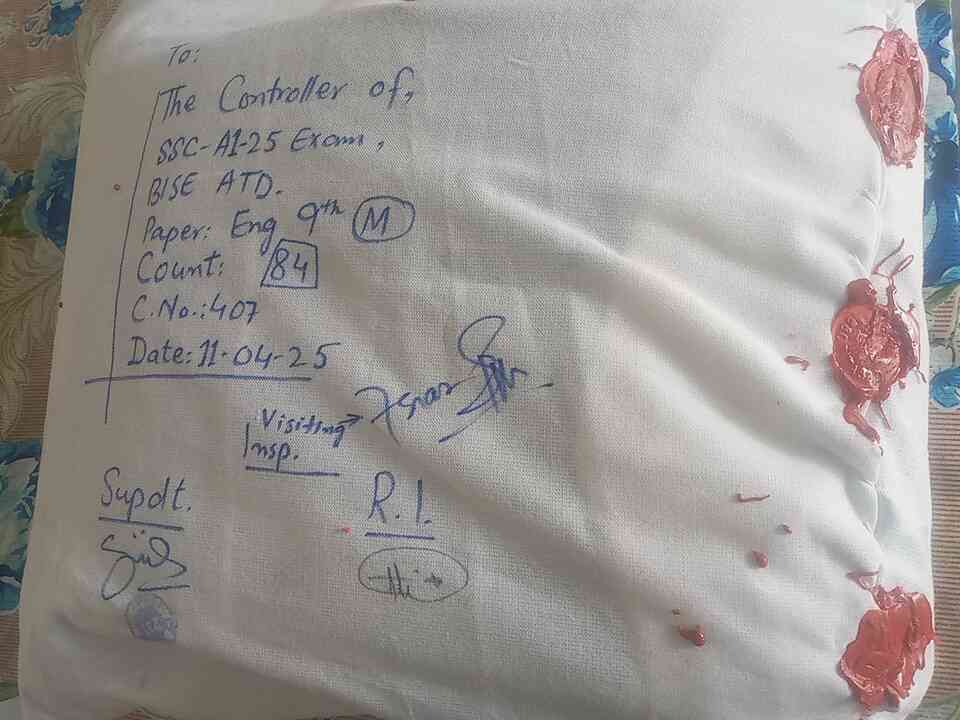 To:
The Controller of,
SSC-A1-25 Exam,
BISE ATD.
Paper: Eng 9th M
Count: 84
C.No.: 407
Date: 11-04-25
Visiting
Insp.
Supdt.
R.I.